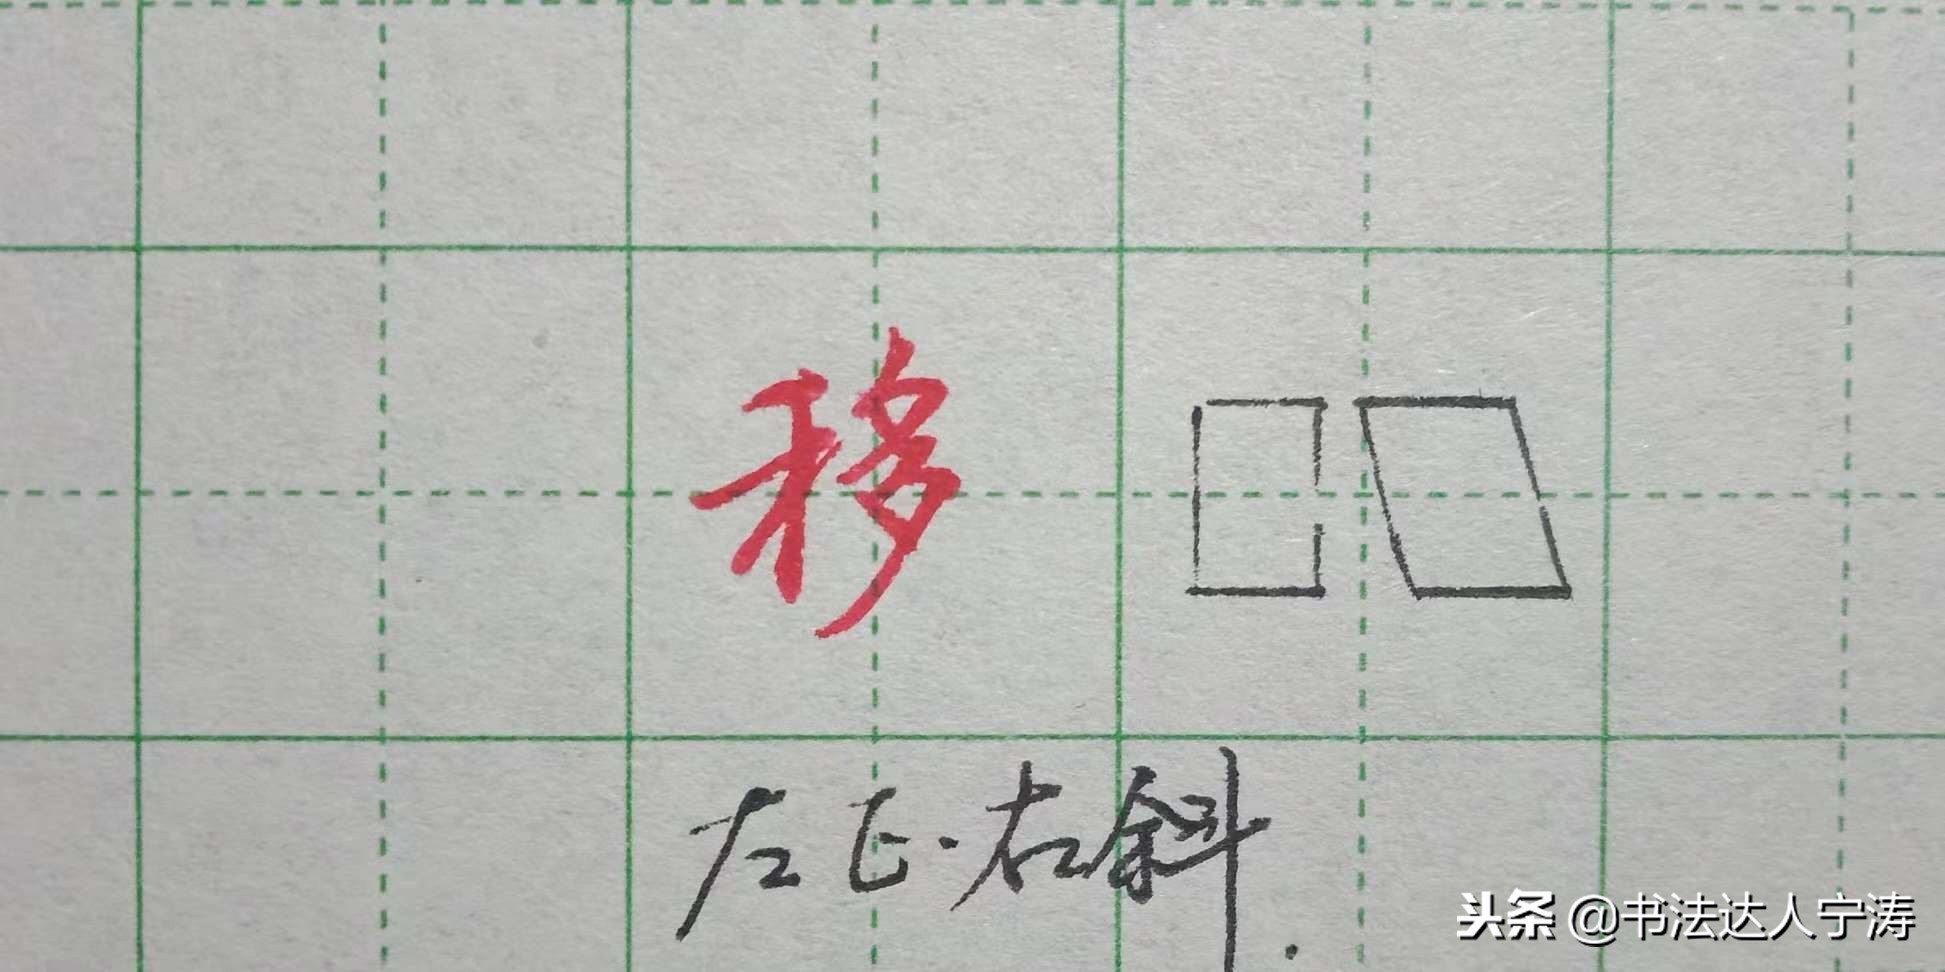 移
左正·右斜.
头条 @书法达人宁涛